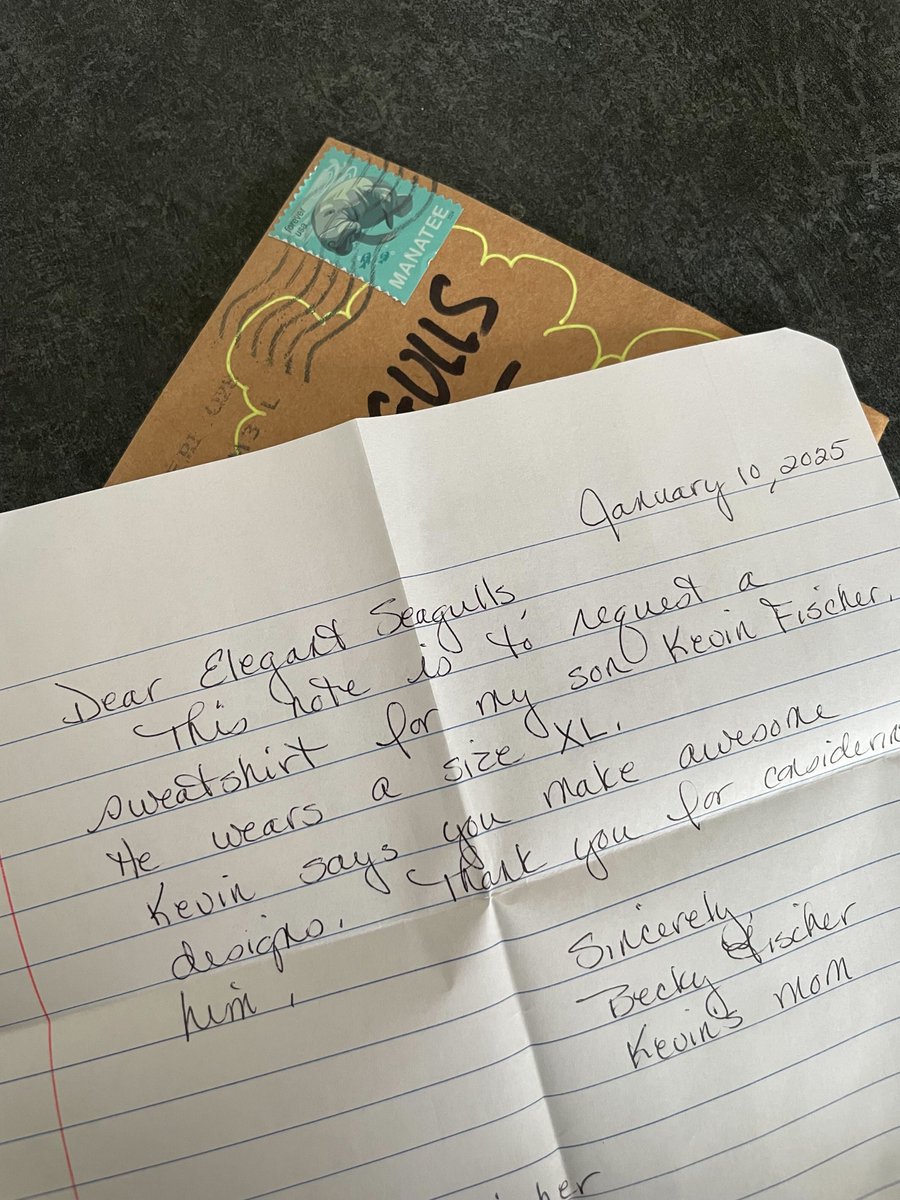 forever
usa
MANATEE
GULLS
January 10, 2025
Dear Elegant Seagulls,
This note is to request a
sweatshirt for my son Kevin Fischer.
He wears a size XL.
Kevin says you make awesome
designs. Thank you for considering
him.
Sincerely,
Becky Fischer
Kevin's mom